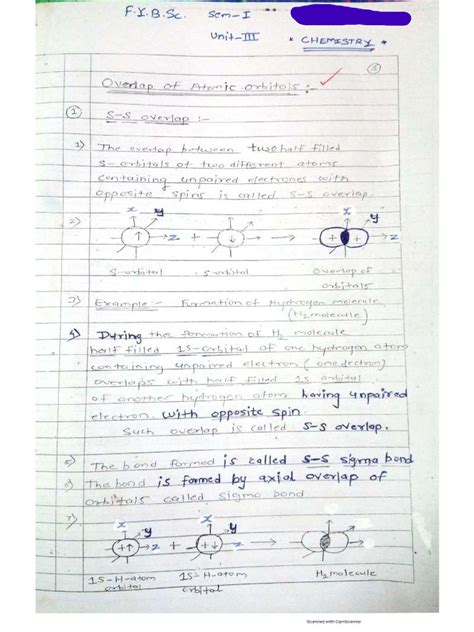 F.Y.B.Sc. Sem-I
Unit-III * CHEMISTRY *
Overlap of Atomic Orbitals :-
① S-S overlap :-
1) The overlap between two half filled
S-orbitals of two different atoms
containing unpaired electrones with
opposite spins is called S-S overlap.
2) x y z + x y z
S-orbital S-orbital Overlap of
orbitals
3) Example :- Formation of Hydrogen molecule
(H2 molecule)
4) During the formation of H2 molecule
half filled 1S-orbital of one hydrogen atom
containing unpaired electron (one electron)
overlaps with half filled 1s orbital
of another hydrogen atom having unpaired
electron with opposite spin.
Such overlap is called S-S overlap.
5) The bond formed is called S-S sigma bond
6) The bond is formed by axial overlap of
orbitals called sigma bond
7) x y z + x y z
1S-H-atom 1S-H-atom H2 molecule
orbital orbital
Scanned with CamScanner